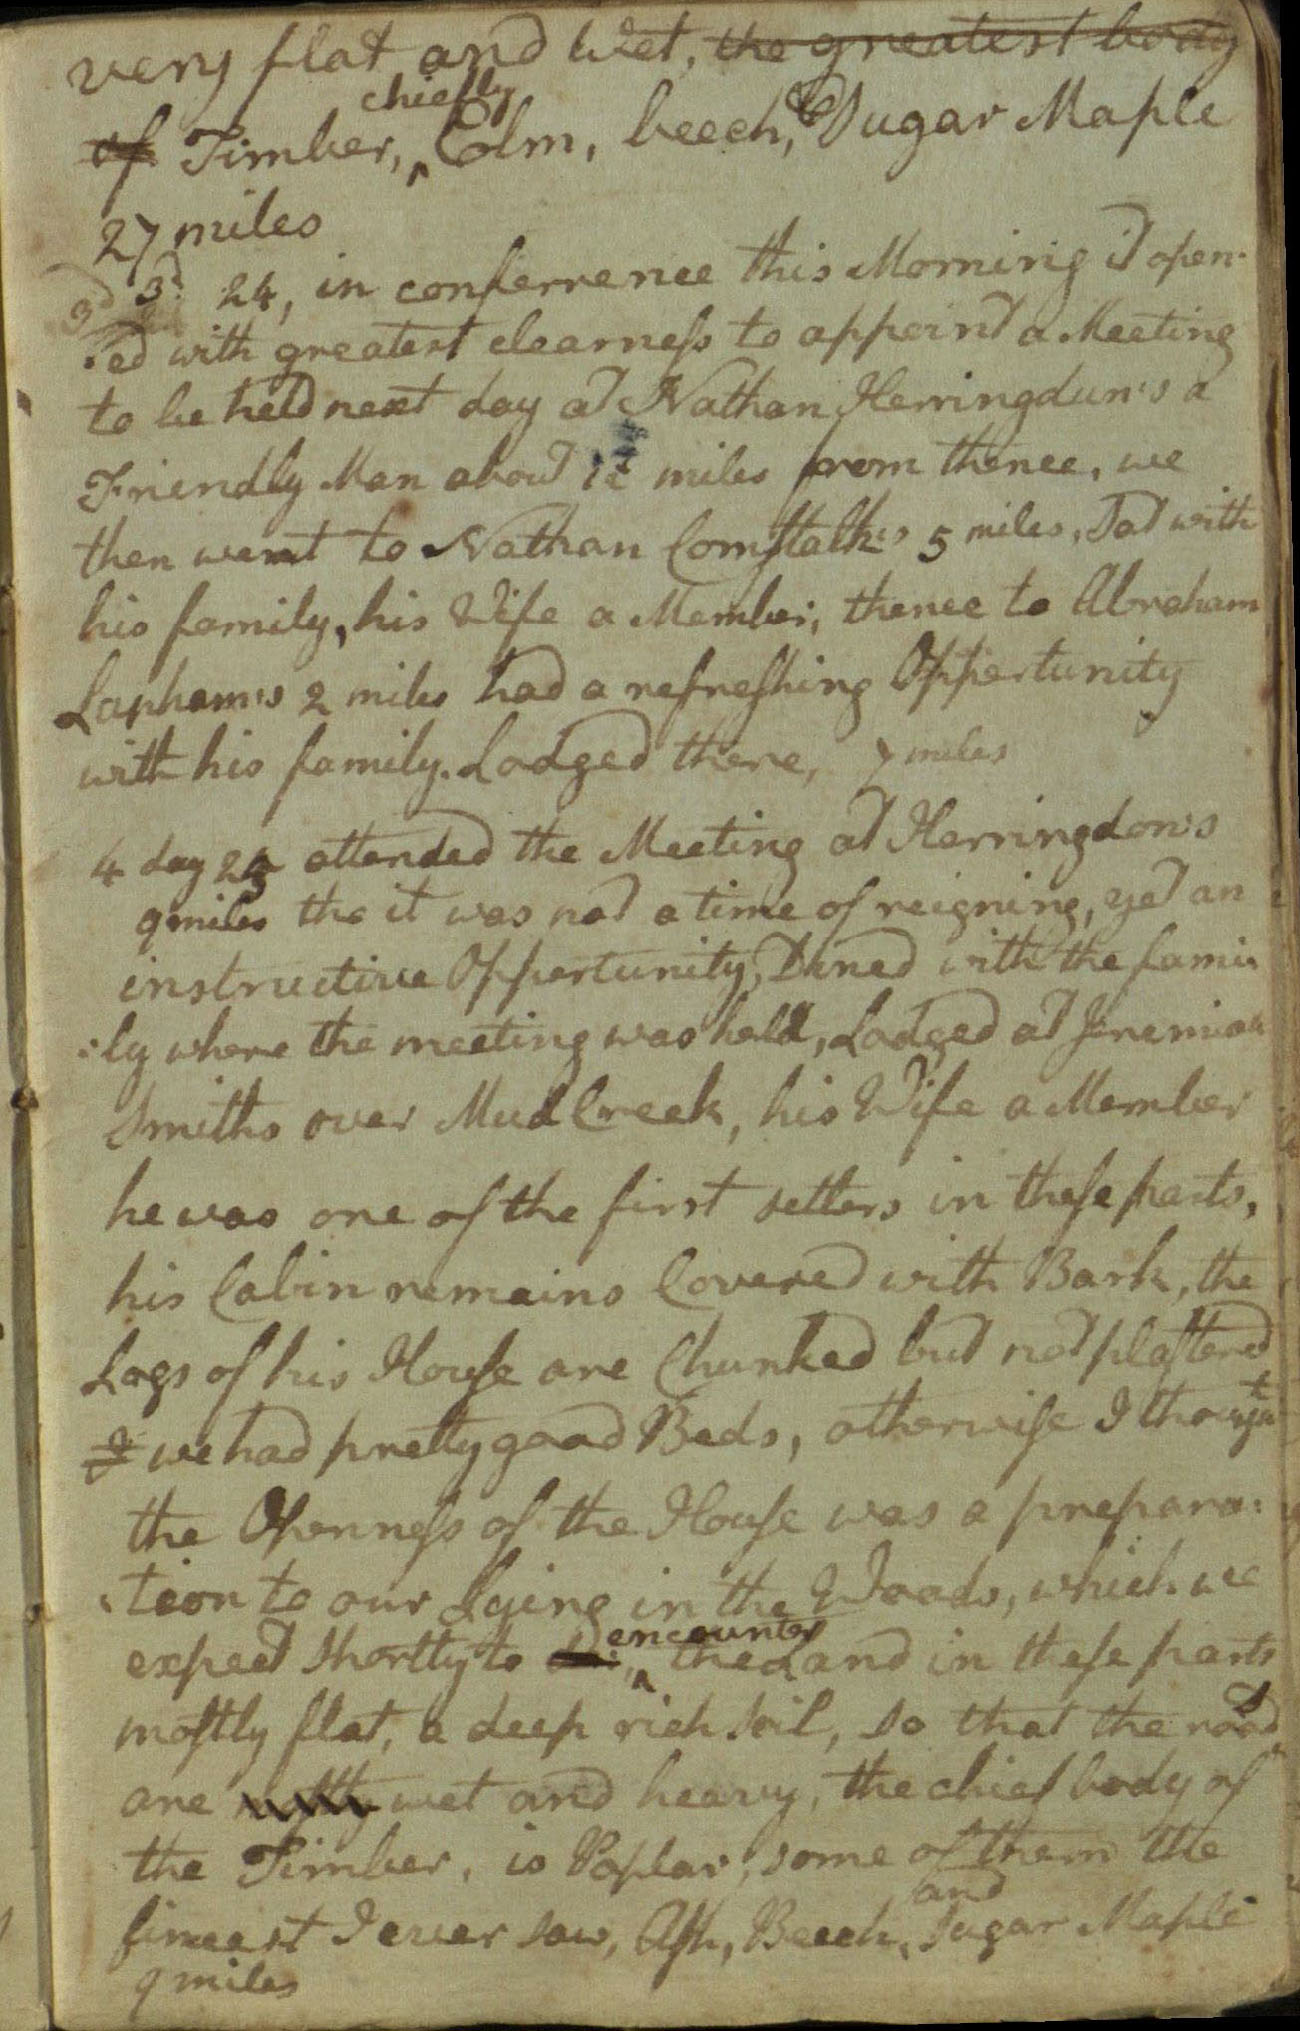 very flat and Wet, the greatest body
of Timber, chiefly Elm, beech, & Sugar Maple
27 miles
3d 3d 24, in conferrence this Morning it open-
:ed with greatest clearness to appoint a Meeting
to be held next day at Nathan Herringdun's a
Friendly Man about miles from thence, we
then went to Nathan Comstalk's 5 miles, Sat with
his family, his Wife a Member; thence to Abraham
Lapham's 2 miles had a refreshing Oppertunity
with his family. Lodged there, 7 miles
4 day 25 attended the Meeting at Herringdons
9 miles tho it was not a time of reigning, yet an
instructive Oppertunity, Dined with the fami
:ly where the meeting was held, Lodged at Jeremiah
Smiths over Mud Creek, his Wife a Member
he was one of the first setlers in these parts,
his Cabin remains Covered with Bark, the
Logs of his House are Chunked but not plastered
I we had pretty good Beds, otherwise I thought
the Openness of the House was a prepara:
:tion to our Lying in the Woods, which we
expect Shortly to encounter the Land in these parts
mostly flat, a deep rich Soil, so that the roads
are wet and heavy, the chief body of
the Timber, is Poplar, some of them the
fineest I ever saw, Ash, Beech, and Sugar Maple
9 miles